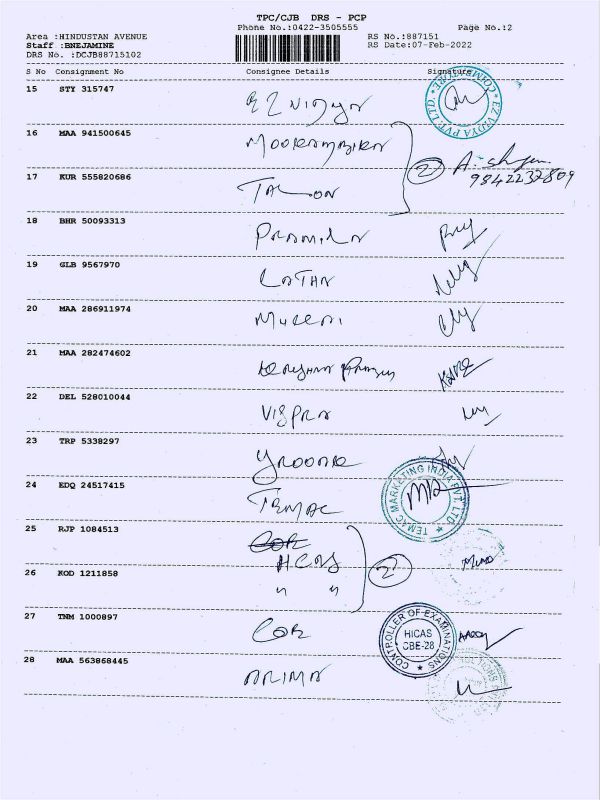 TPC/CJB DRS - PCP
Phone No.:0422-3505555 Page No.:2
Area :HINDUSTAN AVENUE RS No.:887151
Staff :BNEJAMINE RS Date:07-Feb-2022
DRS No. :DCJB88715102
S No Consignment No Consignee Details Signature
15 STY 315747 EZ VIDYA
EZ VIDYA PVT. LTD. * COIMBATORE *
16 MAA 941500645 MOOKAMBIKA
2 9842232809
17 KUR 555820686
18 BHR 50093313 PRAMILA
19 GLB 9567970 LATHA
20 MAA 286911974
21 MAA 282474602
22 DEL 528010044
23 TRP 5338297
24 EDQ 24517415 TEMAC
TEMAC MARKETING INDIA PVT. LTD
25 RJP 1084513 COE HCAS
2
26 KOD 1211858 " "
27 TNM 1000897 COE
CONTROLLER OF EXAMINATIONS HICAS CBE-28
28 MAA 563868445